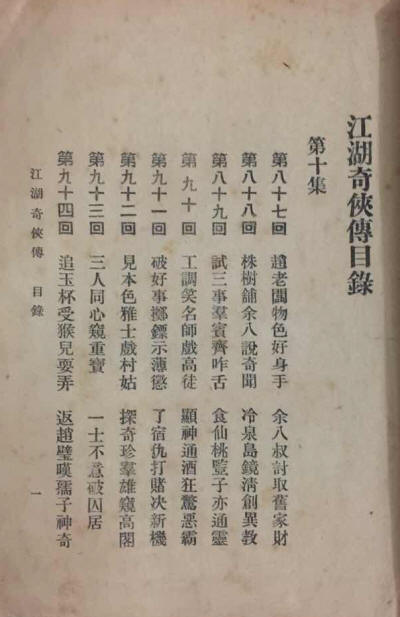 江湖奇俠傳目錄
第十集
第八十七回 趙老闆物色好身手 余八叔討取舊家財
第八十八回 株樹舖余八說奇聞 冷泉島鏡清創異教
第八十九回 試三事羣賓齊咋舌 食仙桃豎子亦通靈
第九十回 工調笑名師戲高徒 顯神通酒狂驚惡霸
第九十一回 破好事擲鏢示薄懲 了宿仇打賭决新機
第九十二回 見本色雅士戲村姑 探奇珍羣雄窺高閣
第九十三回 三人同心窺重寶 一士不意破囚居
第九十四回 追玉杯受猴兒耍弄 返趙璧嘆孺子神奇
江湖奇俠傳 目錄 一